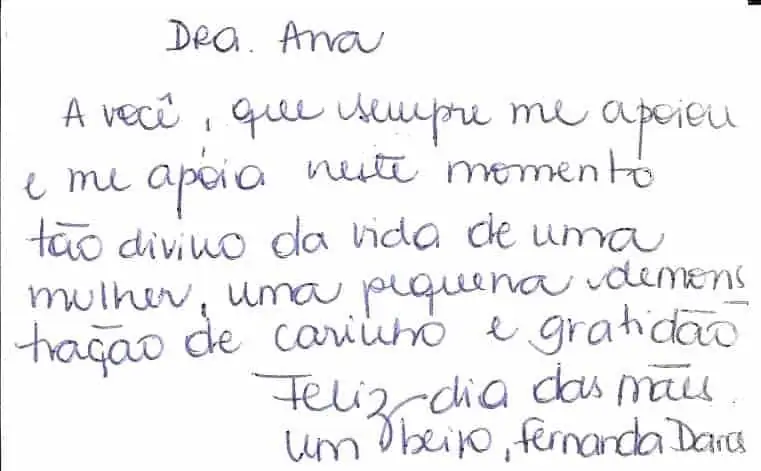 Dra. Ana
A você, que sempre me apoiou
e me apóia neste momento
tão divino da vida de uma
mulher, uma pequena demons
tração de carinho e gratidão
Feliz dia das mães.
Um beijo, Fernanda